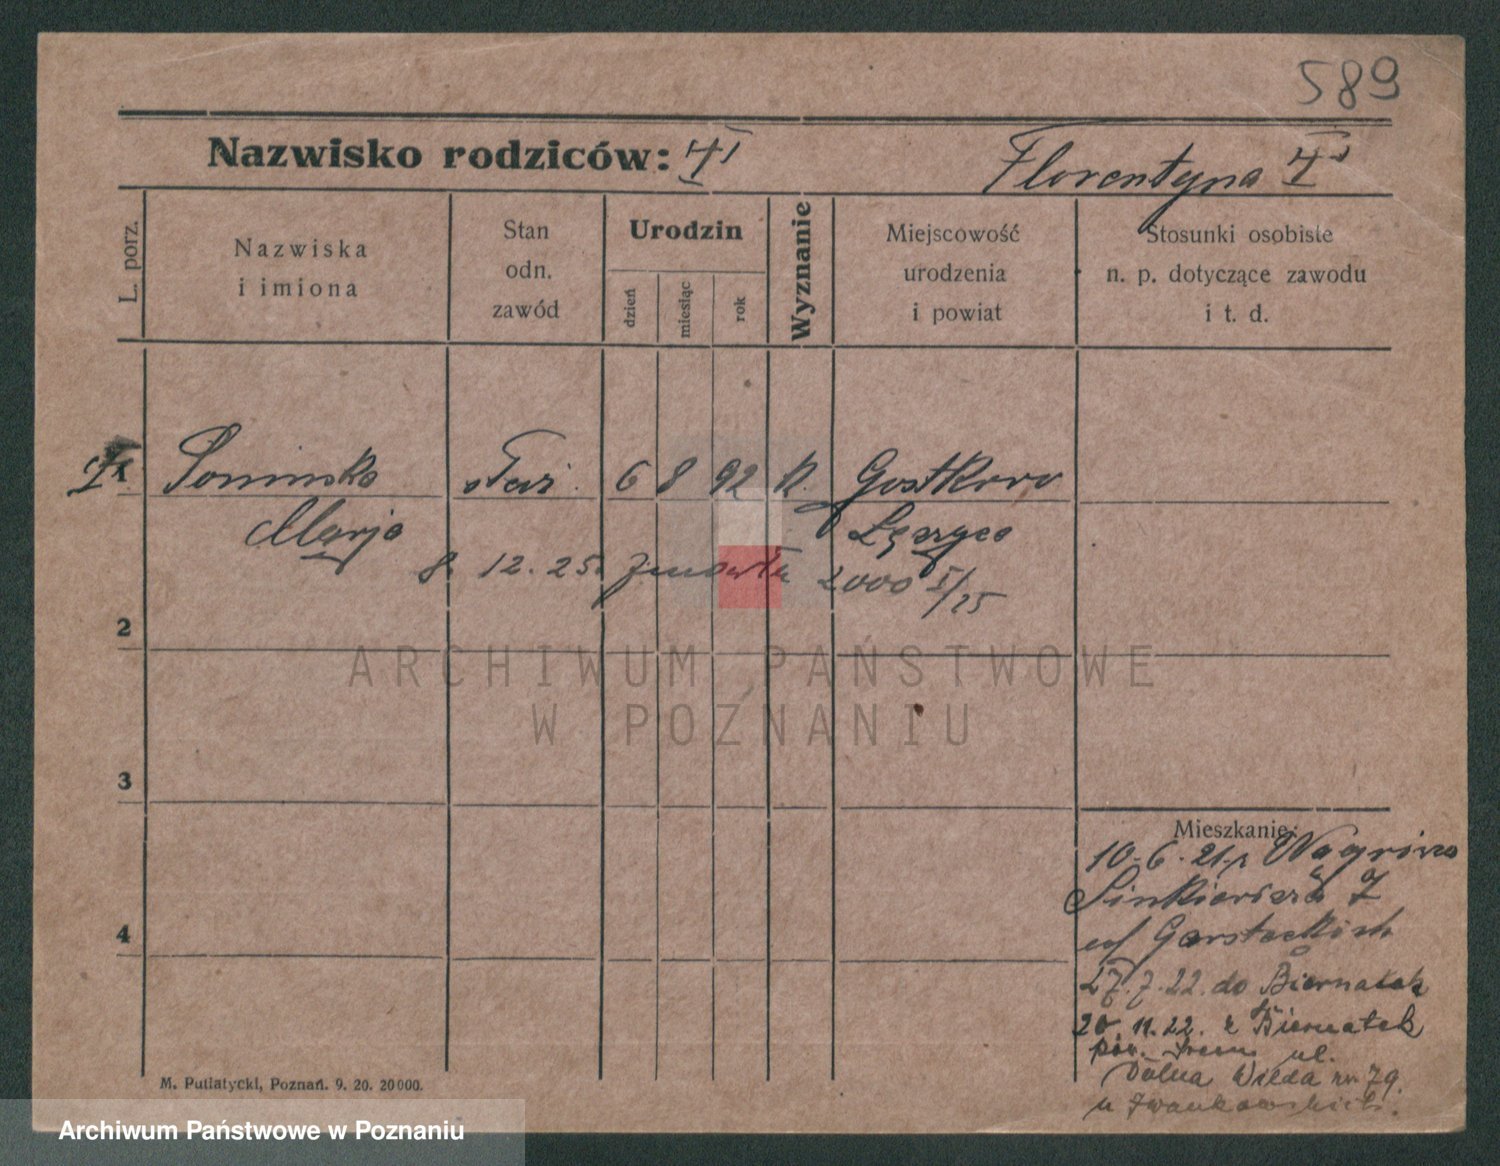 589
Nazwisko rodziców:
Florentyna
L. porz.
Nazwiska
i imiona
Stan
odn.
zawód
Urodzin
dzień
miesiąc
rok
Wyznanie
Miejscowość
urodzenia
i powiat
Stosunki osobiste
n. p. dotyczące zawodu
i t. d.
służ. 6 8 92 k. Gostkowo
Marja
8. 12. 25. zmarła 2000 I/25
2
ARCHIWUM PAŃSTWOWE
W POZNANIU
3
Mieszkanie:
10.6.21. z
Sinkiewicza 7
4
27.7.22. do Biernatek
20.11.22. z Biernatek
pow. Śrem ul.
Dolna Wilda nr 79.
M. Putiatycki, Poznań. 9. 20. 20000.
Archiwum Państwowe w Poznaniu